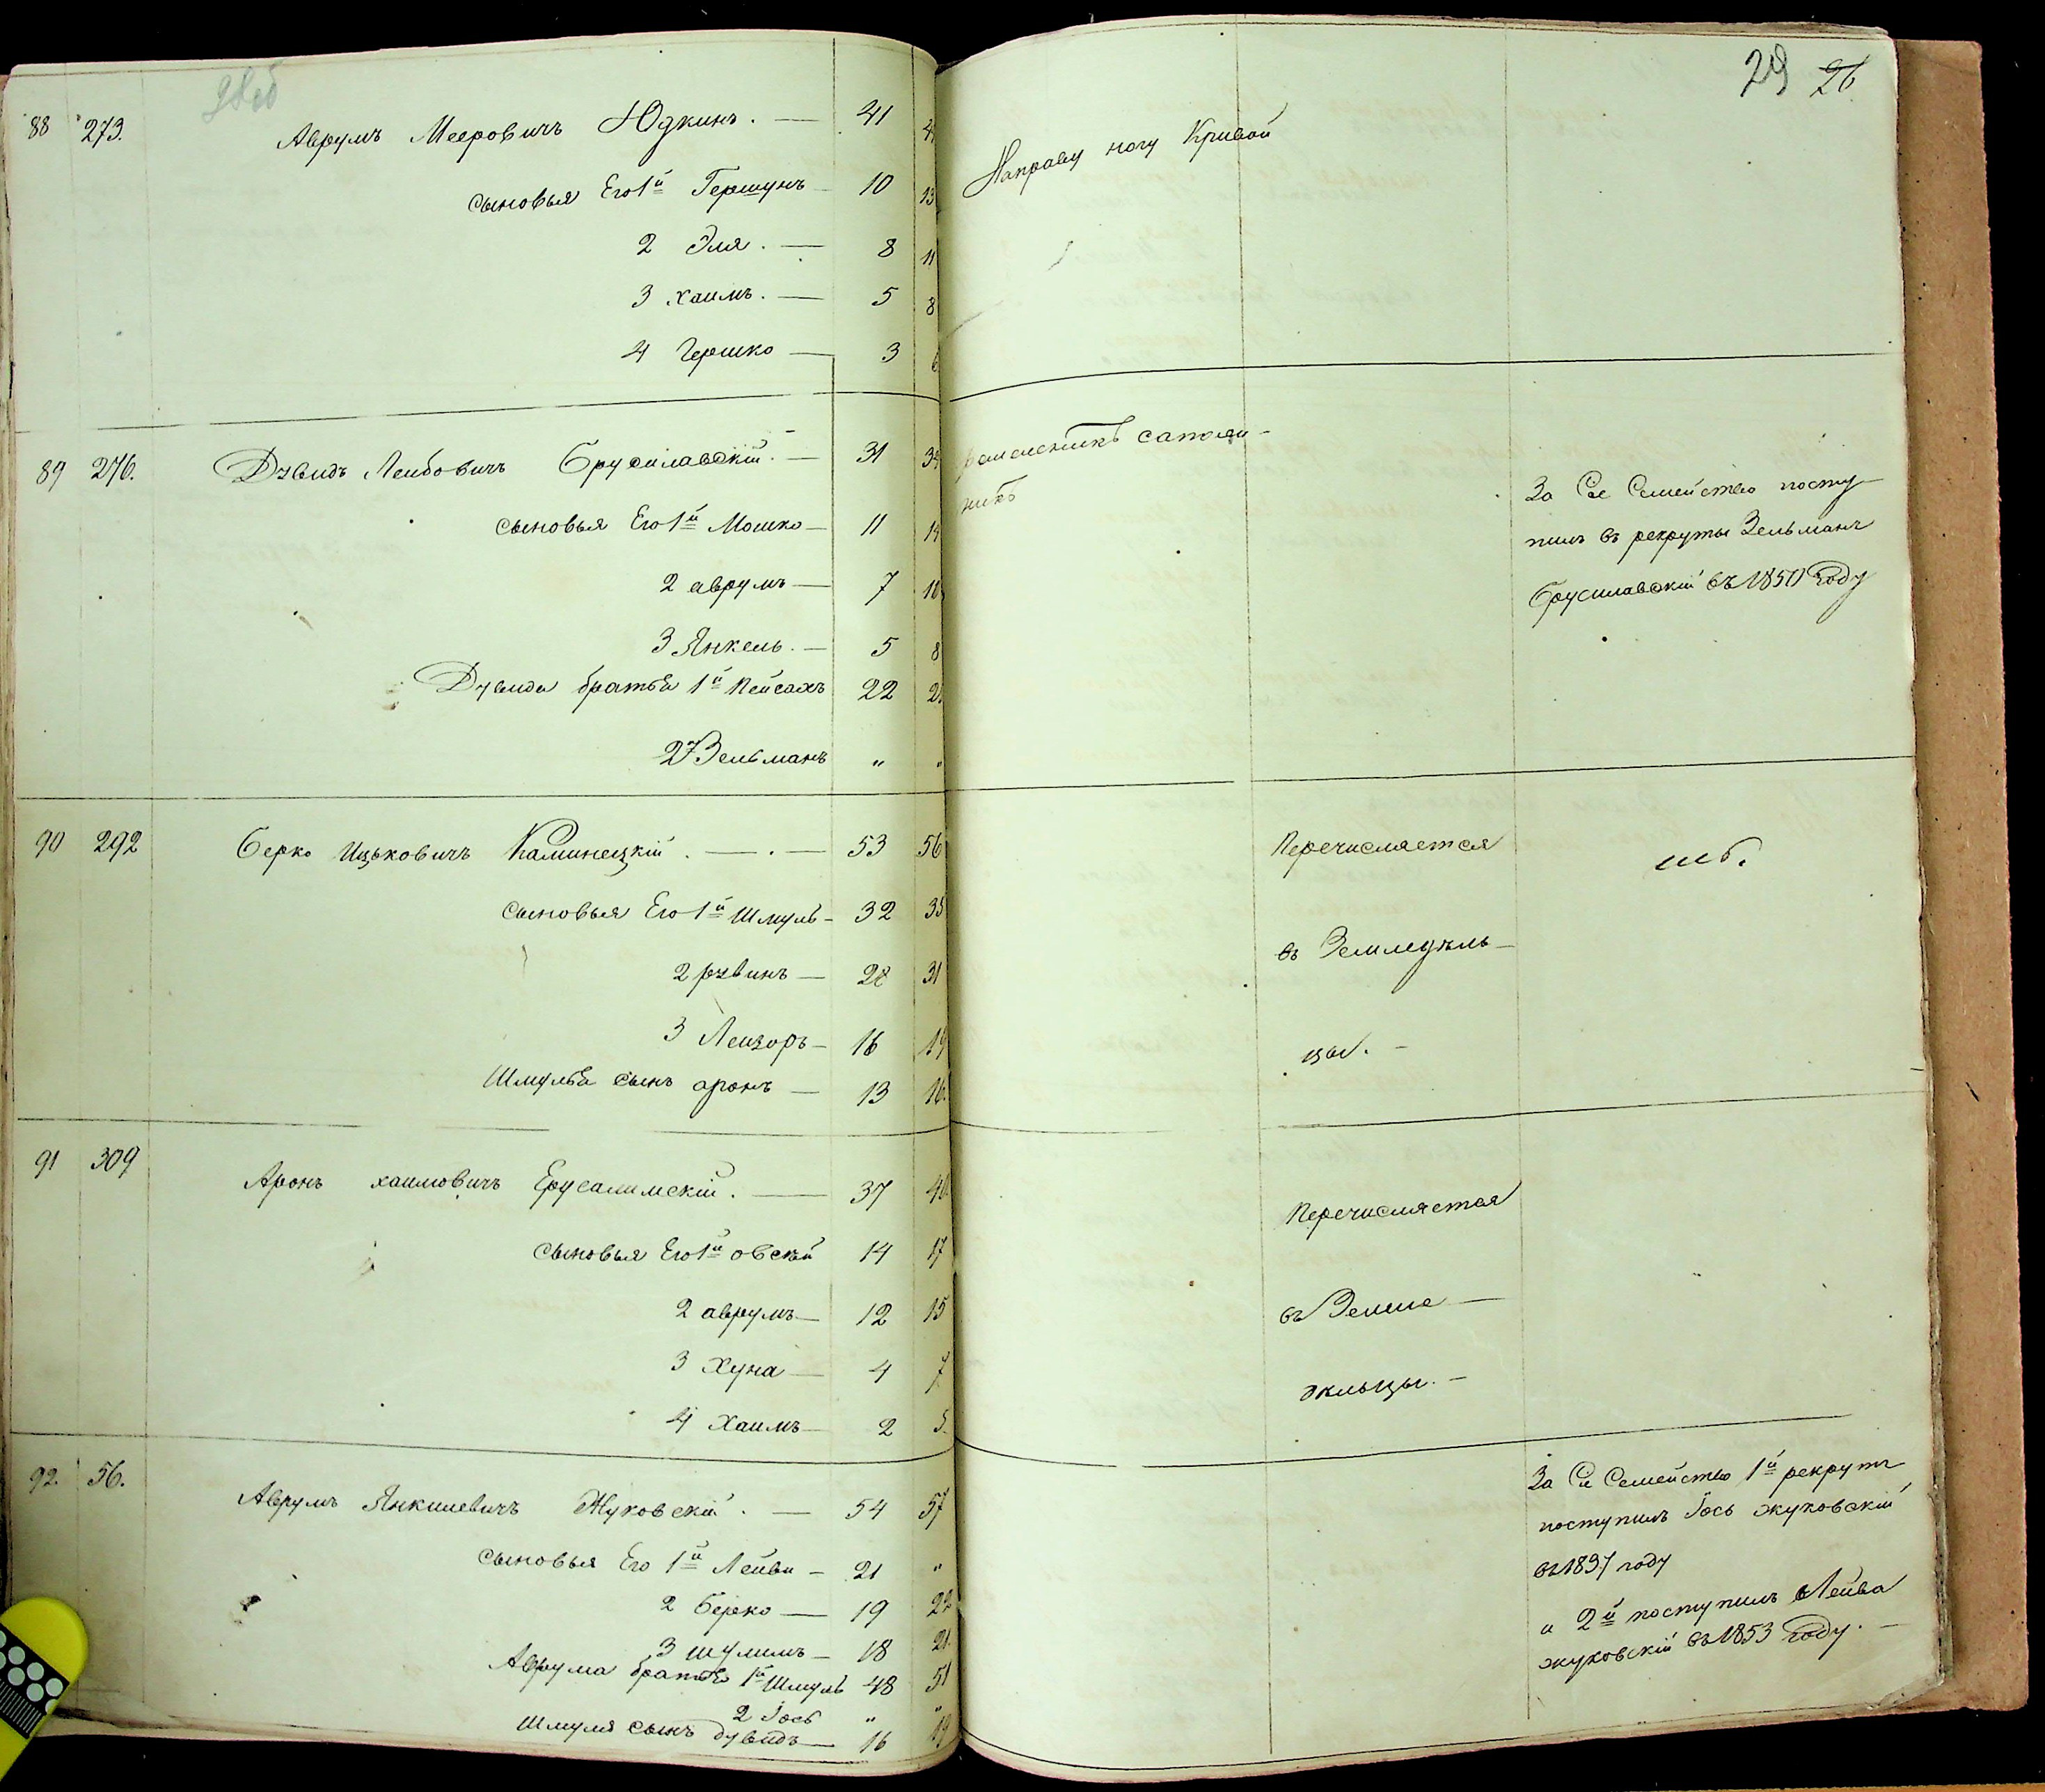 29 26
88 273. Аврумъ Мееровичъ Юдкинъ. — 41
Направу ногу Кривой
сыновья Его 1й Гершунъ — 10 13
2 Эля. — 8 11
3 хаимъ. — 5 8
4 Гершко — 3 6
89 276. Дувидъ Лейбовичъ Брусилавскій. — 31 34
ремесленикъ сапож-
никъ
сыновья Его 1й Мошко — 11 14
2 аврумъ — 7 10
3 Янкель. — 5 8
Дувида братья 1й Пейсахъ 22
2й Зельманъ „ „
За Сіе Семейство посту-
пилъ въ рекруты Зельманъ
Брусилавскій въ 1850 Году
90 292 Берко Ицьковичъ Каминецкій. — . — 53 56
сыновья Его 1й Шмуль — 32 35
2 рувинъ — 28 31
3 Лейзоръ — 16 19
Шмуля сынъ аронъ — 13 16.
Перечисляется
въ Земледѣль-
цы. —
91 309 Аронъ хаимовичъ Ерусалимскій. — 37 40
сыновья Его 1й овсѣй 14 17
2 аврумъ — 12 15
3 Хуна — 4 7
4 Хаимъ — 2 5.
Перечисляется
въ Земле-
дельцы. —
92. 56. Аврумъ Янкилевичъ Жуковскій. — 54 57
сыновья Его 1й Лейва — 21 „
2 берко — 19 22
3 шулимъ — 18 21.
Аврума братья 1й Шмуль 48 51
2 Іось „ „
Шмуля сынъ дувидъ — 16 19
За Сіе Семейство 1й рекрутъ
поступилъ Іось жуковскій
въ 1837 году
и 2й поступилъ Лейва
жуковскій въ 1853 Году. —